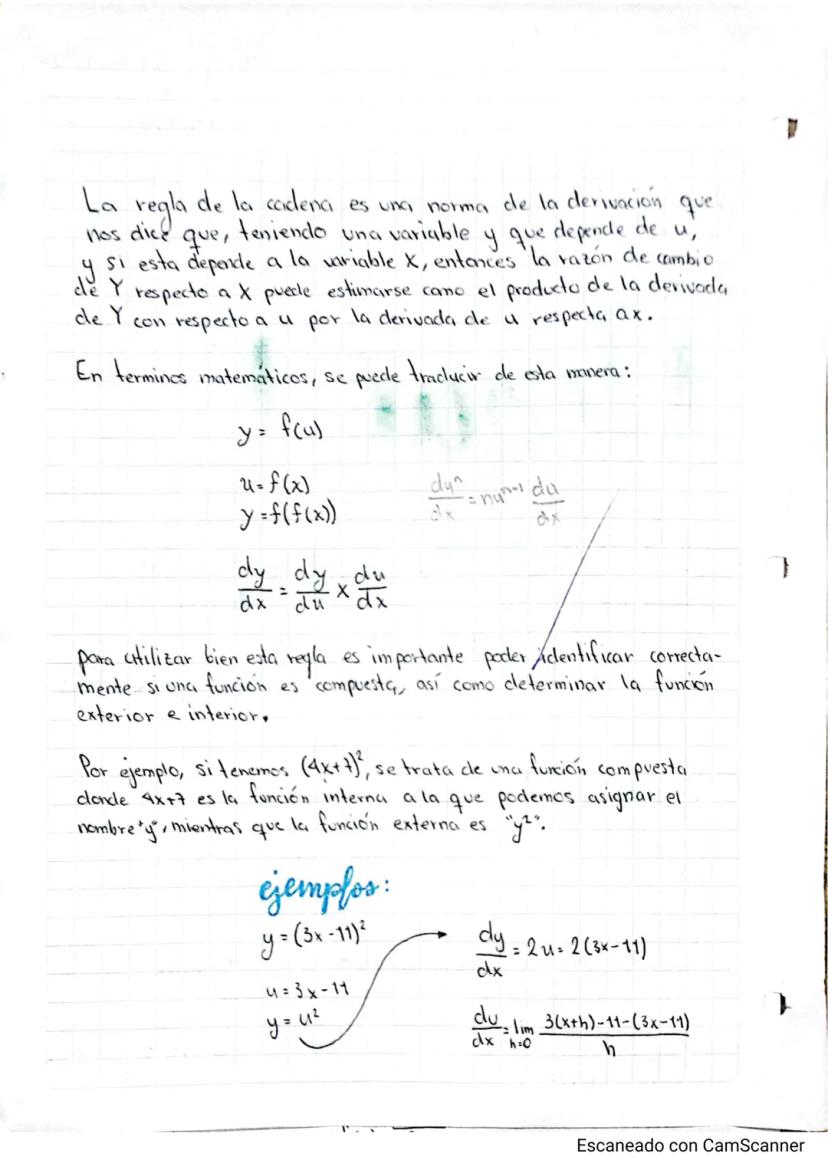 La regla de la cadena es una norma de la derivación que
nos dice que, teniendo una variable y que depende de u,
y si esta depende a la variable x, entonces la razón de cambio
de Y respecto a X puede estimarse como el producto de la derivada
de Y con respecto a u por la derivada de u respecta a x.
En terminos matemáticos, se puede traducir de esta manera:
y = f(u)
u = f(x)
y = f(f(x))
du^n/dx = nu^(n-1) du/dx
dy/dx = dy/du × du/dx
para utilizar bien esta regla es importante poder identificar correcta-
mente si una función es compuesta, así como determinar la función
exterior e interior.
Por ejemplo, si tenemos (4x+7)², se trata de una función compuesta
donde 4x+7 es la función interna a la que podemos asignar el
nombre "y", mientras que la función externa es "y²".
ejemplos:
y = (3x-11)²
u = 3x-11
y = u²
dy/dx = 2u = 2(3x-11)
du/dx = lim h=0 3(x+h)-11-(3x-11)/h
Escaneado con CamScanner